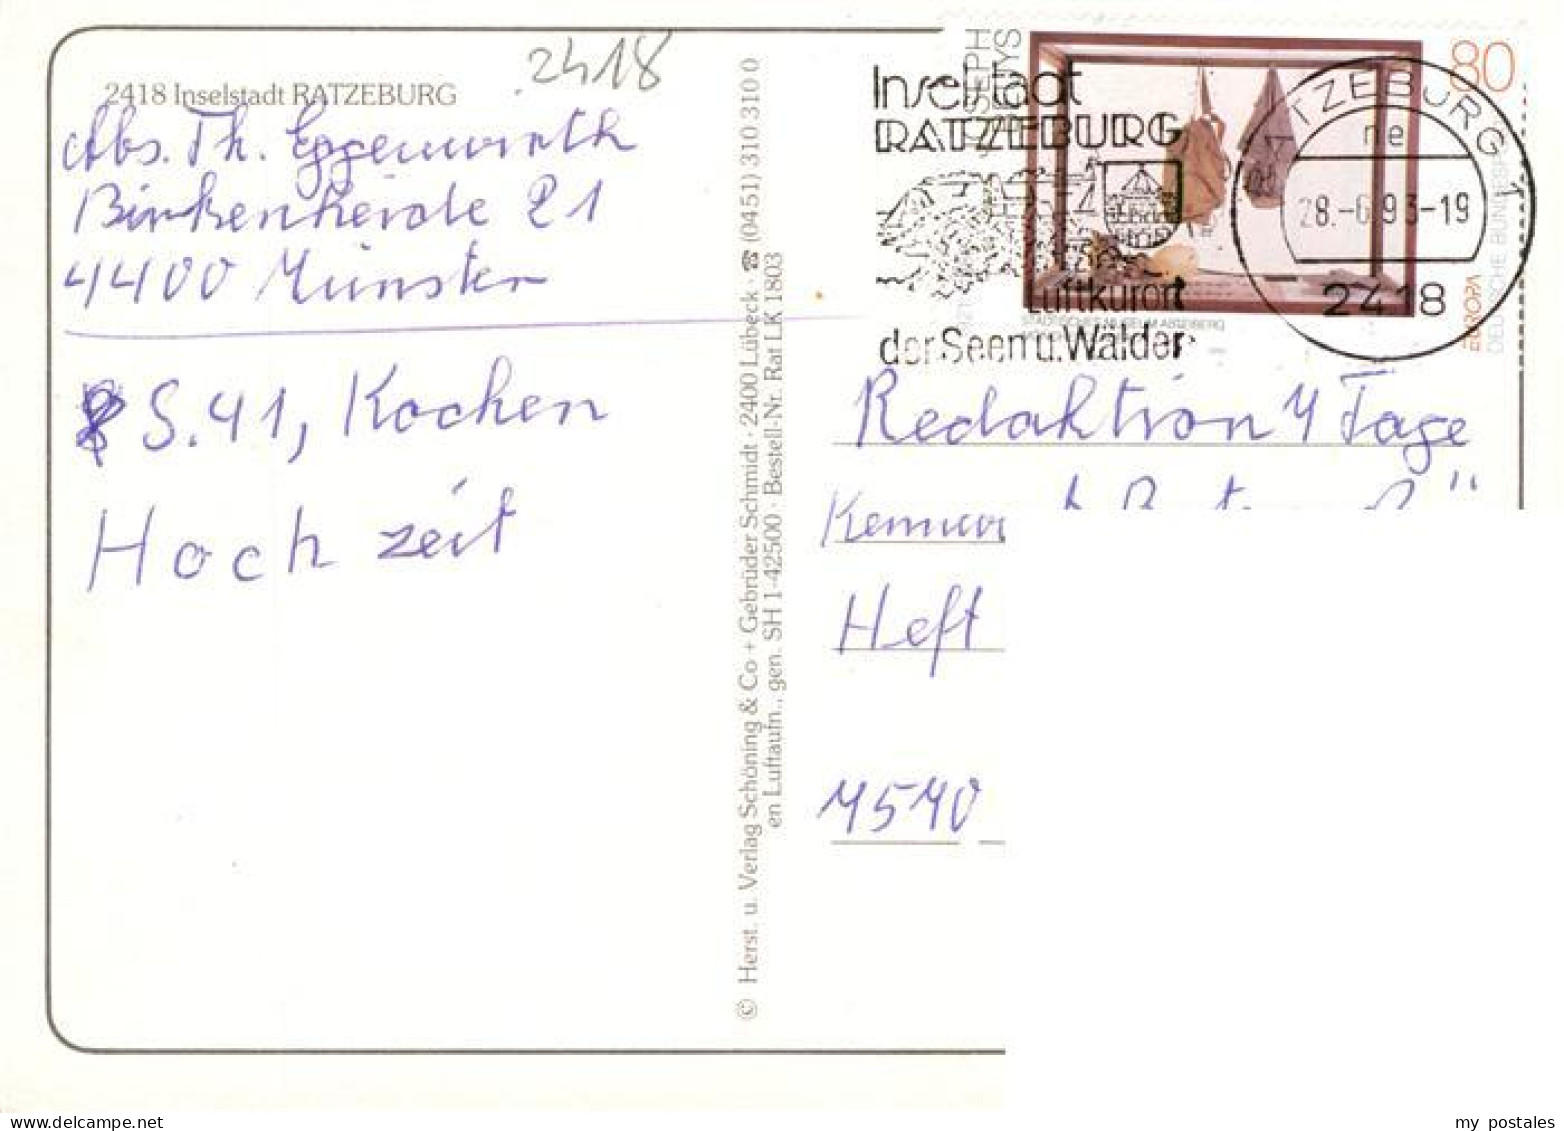 2418
2418 Inselstadt RATZEBURG
Abs. Th. Eggenwirth
Birkenheide 21
4400 Münster
S. 41, Kochen
Hoch zeit
© Herst. u. Verlag Schöning & Co + Gebrüder Schmidt · 2400 Lübeck · ☎ (0451) 310 310 0
en Luftaufn., gen. SH 1-42500 · Bestell-Nr. Rat LK 1803
Inselstadt
RATZEBURG
Luftkurort
der Seen u. Wälder
JOSEPH
80
EUROPA
RATZEBURG 1
ne
28.-6.93-19
2418
Redaktion 4 Tage
Kennwor
Heft
4540
my postales